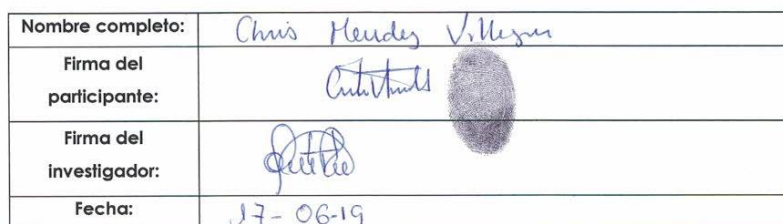 Nombre completo: Chris Mendez Villegas
Firma del
participante:
Firma del
investigador:
Fecha: 17-06-19